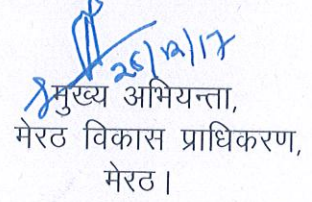 26/12/17
मुख्य अभियन्ता,
मेरठ विकास प्राधिकरण,
मेरठ।